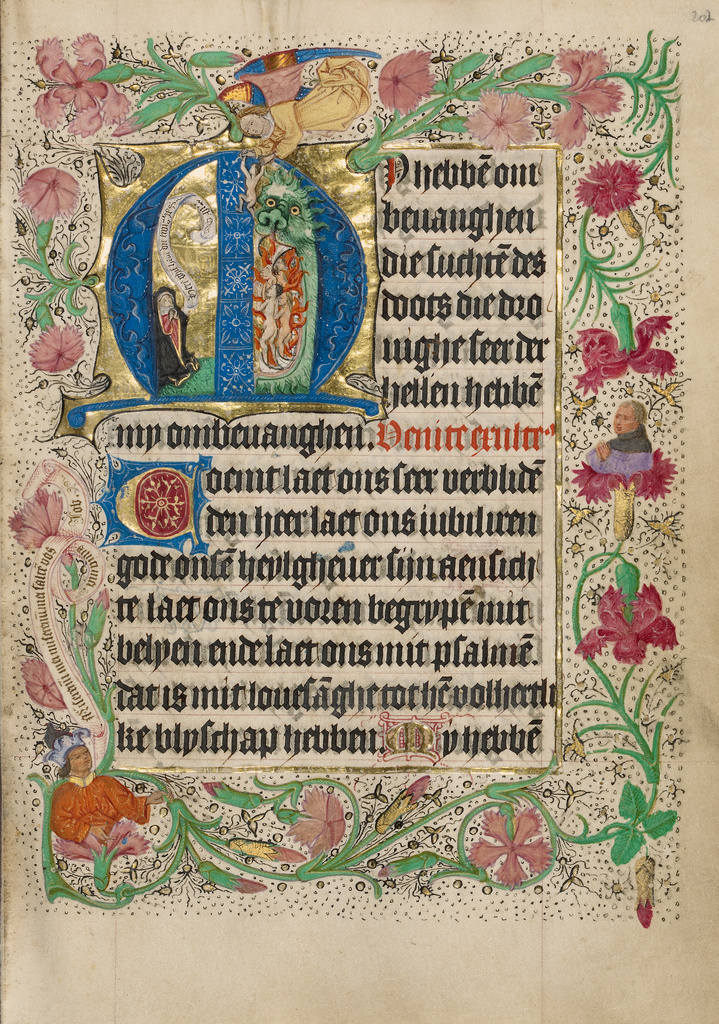 202
Y hebbē om
beuanghen
die suchtē des
doots die dro
uighe seer der
hellen hebbē
my ombeuanghen. Venite exulte
Coemt laet ons seer verblidē
den heer laet ons iubiliren
gode onsē heylgheuer sijn aensich
te laet ons te voren begrypē mit
belyen ende laet ons mit psalmē.
dat is mit louesāghe tot hē volherteli
ke blyschap hebben. My hebbē
Job